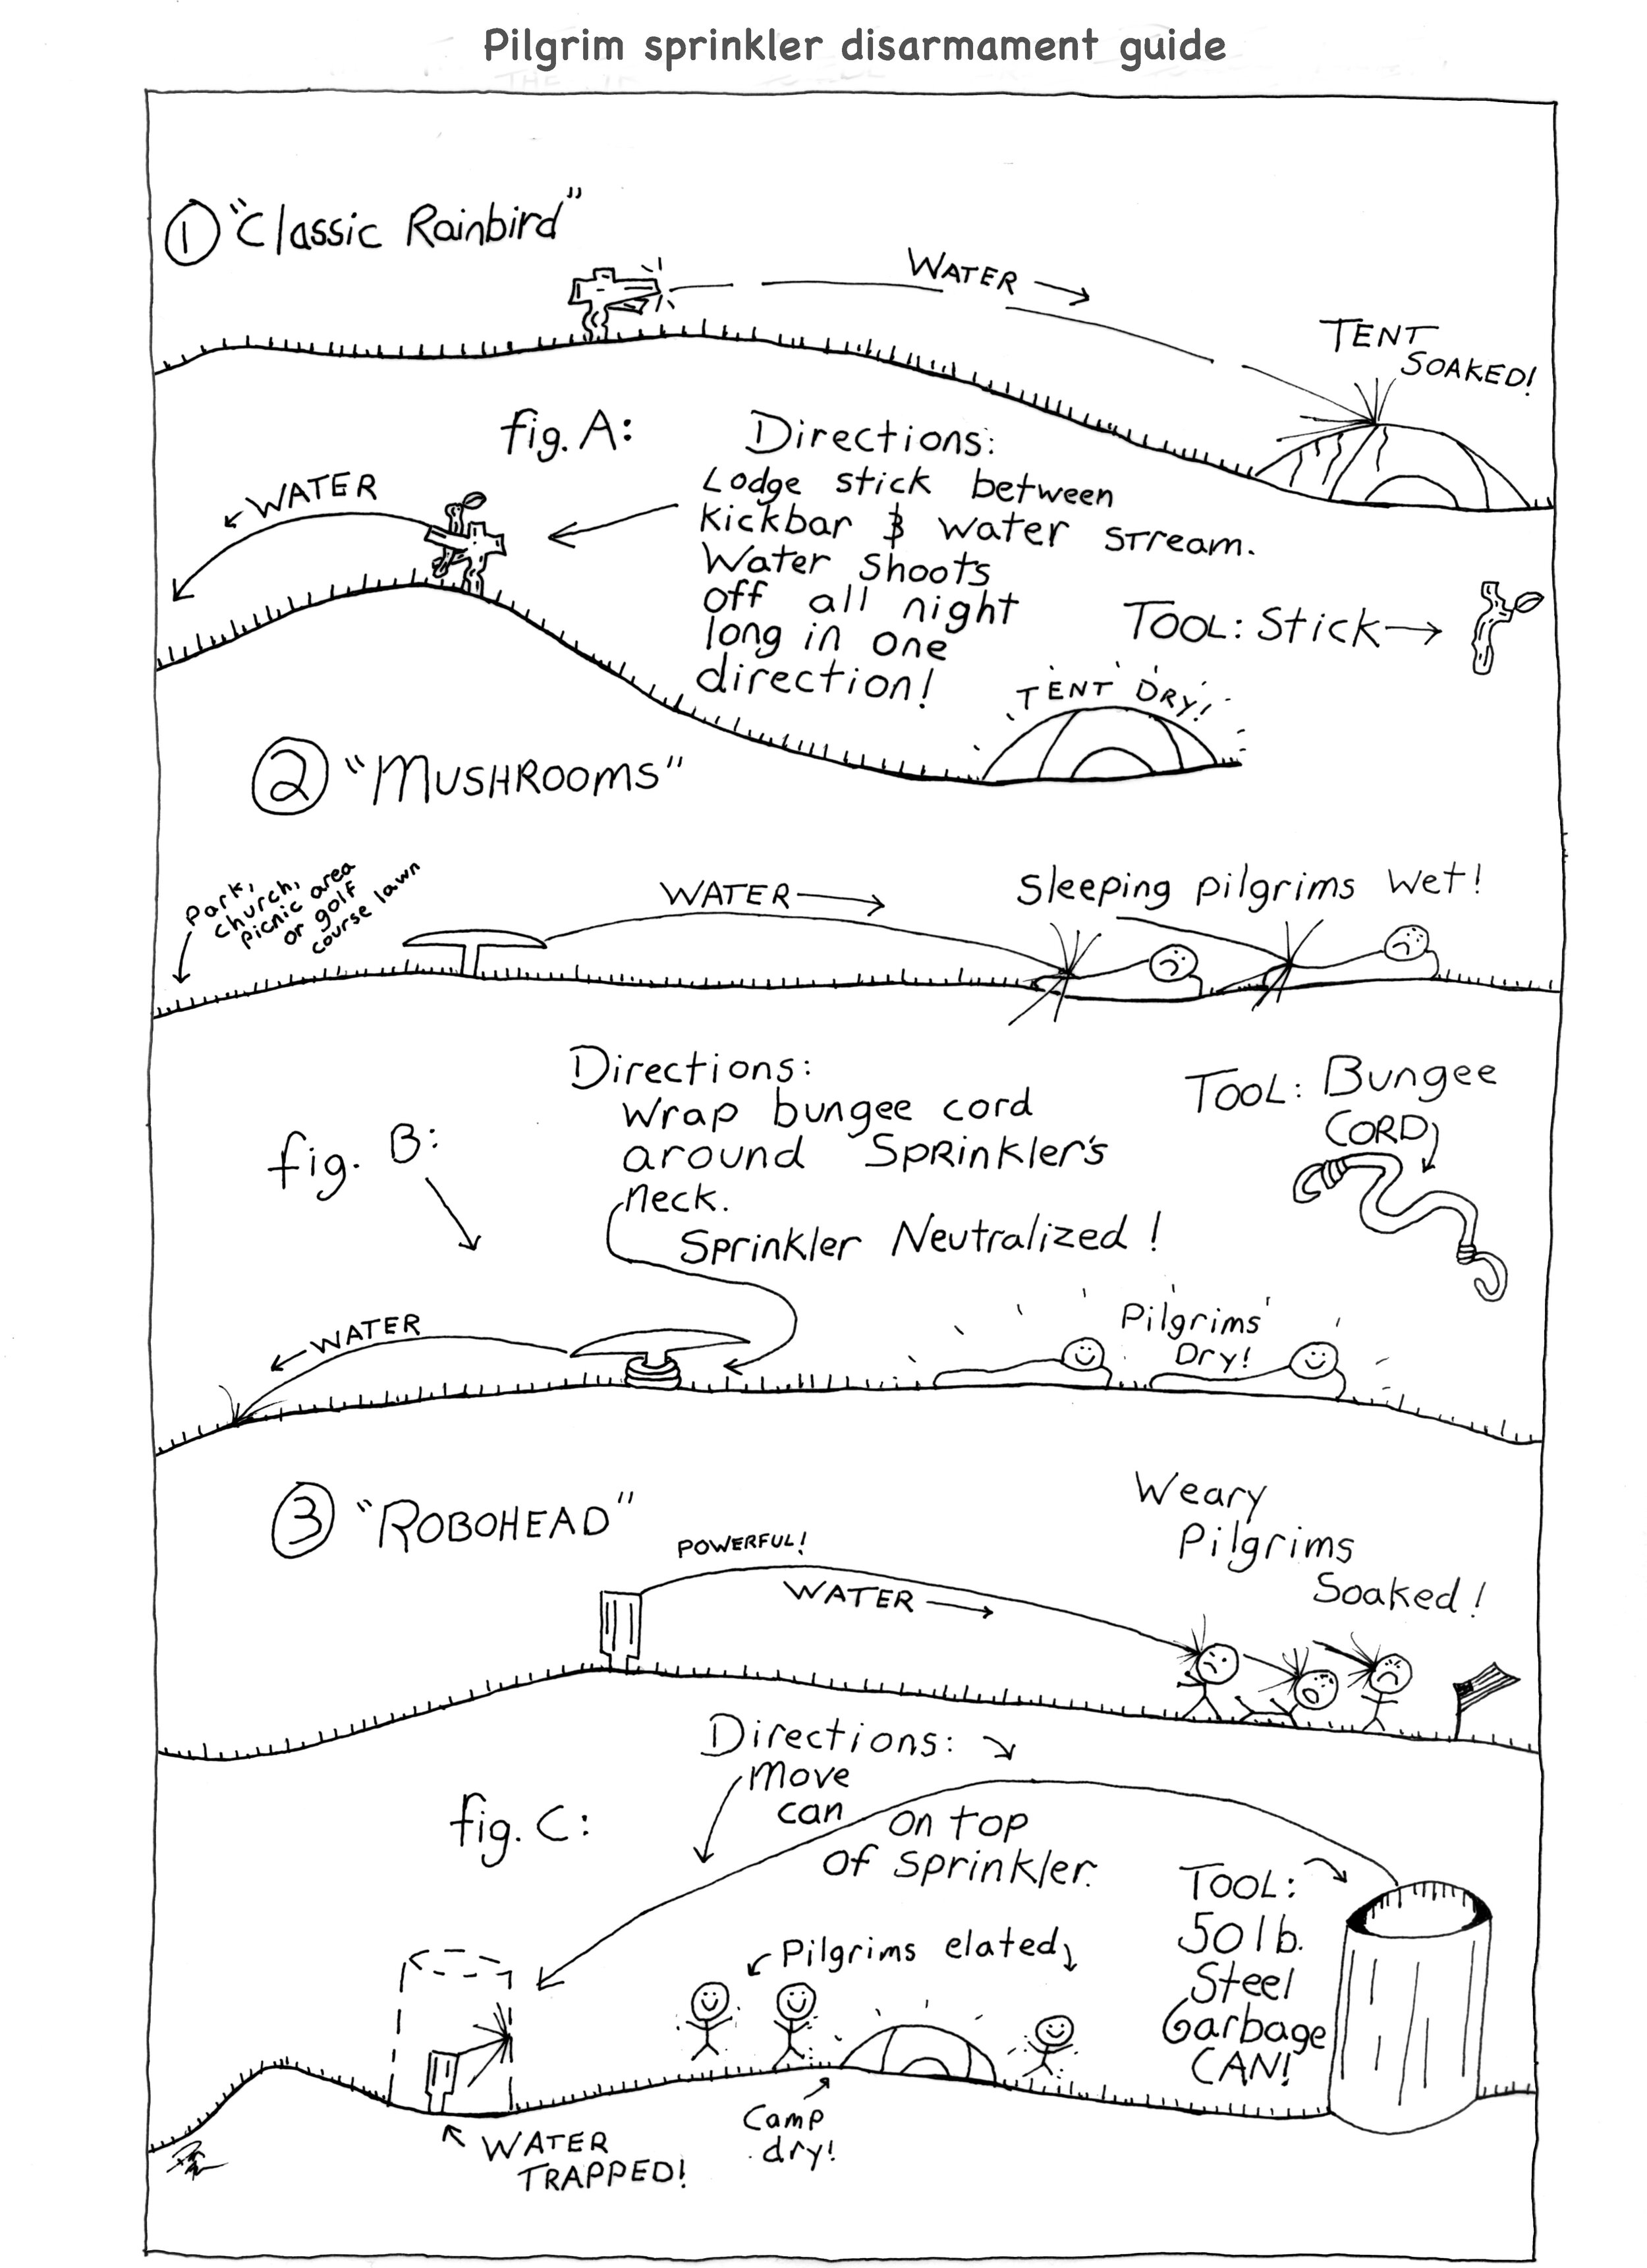 Pilgrim sprinkler disarmament guide
① "Classic Rainbird"
WATER →
TENT
SOAKED!
fig. A:
Directions:
Lodge stick between
kickbar & water stream.
Water shoots
off all night
long in one
direction!
← WATER
TOOL: Stick →
TENT DRY!
② "MUSHROOMS"
Park,
church,
picnic area
or golf
course lawn
WATER →
Sleeping pilgrims wet!
Directions:
Wrap bungee cord
around Sprinkler's
neck.
Sprinkler Neutralized!
TOOL: Bungee
CORD
fig. B:
← WATER
Pilgrims
Dry!
③ "ROBOHEAD"
POWERFUL!
WATER →
Weary
Pilgrims
Soaked!
Directions:
Move
can on top
of sprinkler.
fig. C:
TOOL:
50 lb.
Steel
Garbage
CAN!
Pilgrims elated
Camp
dry!
WATER
TRAPPED!